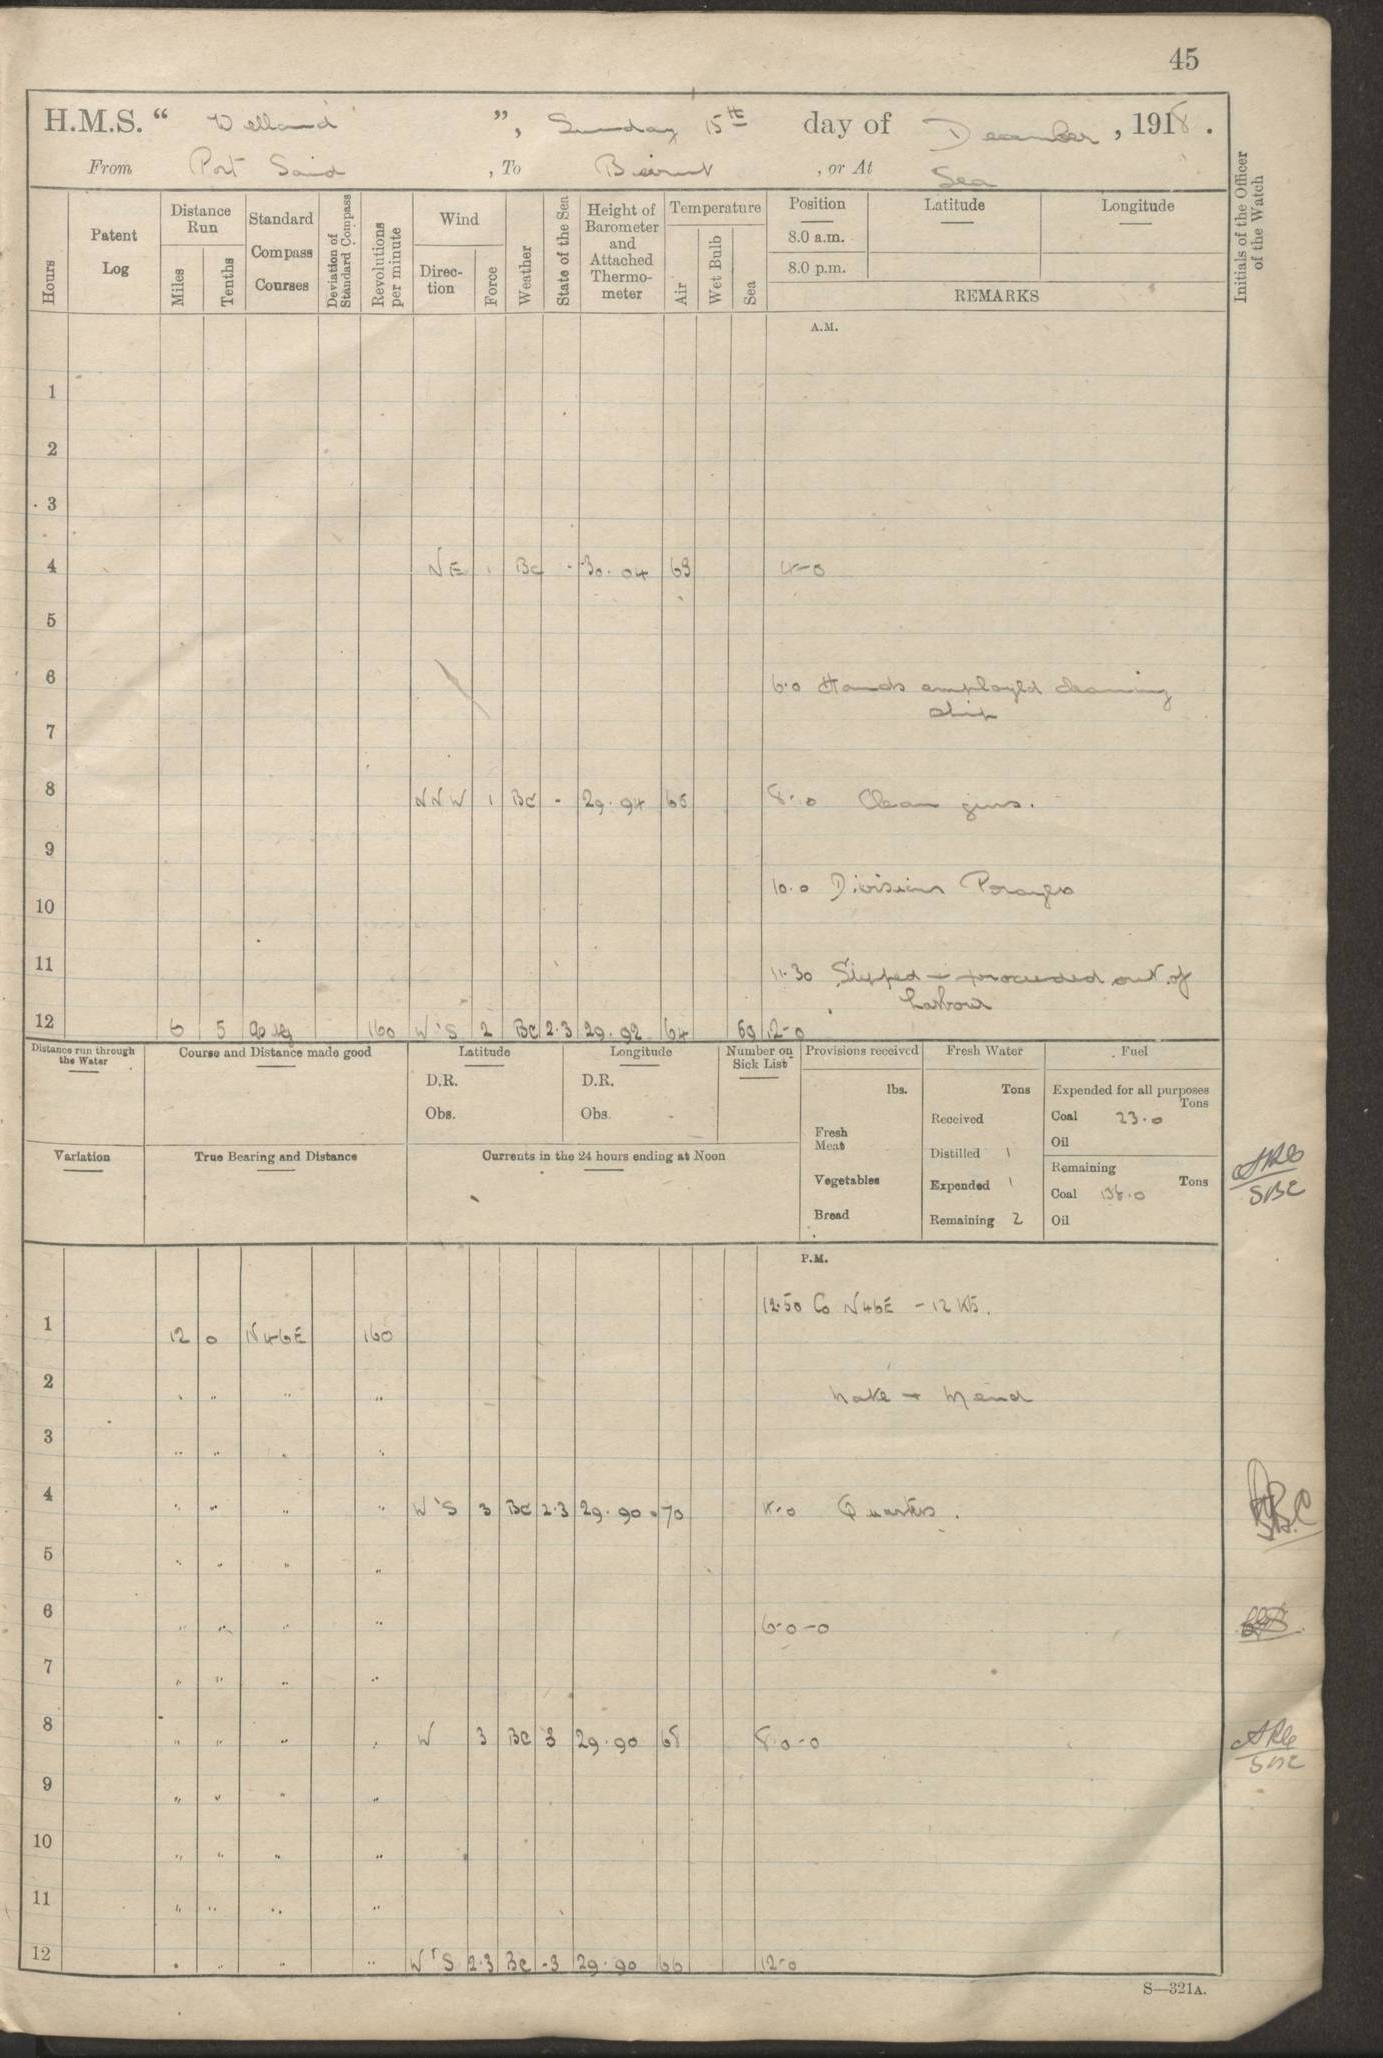 45
H.M.S. “ Welland ”, Sunday 15th day of December, 1918.
From Port Said, To Beirut, or At Sea
Hours
Patent Log
Distance Run
Miles
Tenths
Standard Compass Courses
Deviation of Standard Compass
Revolutions per minute
Wind
Direction
Force
Weather
State of the Sea
Height of Barometer and Attached Thermometer
Temperature
Air
Wet Bulb
Sea
Position
8.0 a.m.
8.0 p.m.
Latitude
Longitude
REMARKS
Initials of the Officer of the Watch
A.M.
1
2
3
4 NE Bc 30.04 63 4-0
5
6 6.0 Hands employed cleaning
ship
7
8 NNW 1 Bc - 29.94 65 8-0 Clean guns.
9
10 10.0 Divisions Prayers
11 11.30 Slipped + proceeded out of
harbour
12 6 5 160 W'S 2 Bc 2.3 29.92 64 69 12-0
Distance run through the Water
Course and Distance made good
Latitude
D.R.
Obs.
Longitude
D.R.
Obs.
Number on Sick List
Provisions received
lbs.
Fresh Meat
Vegetables
Bread
Fresh Water
Tons
Received
Distilled 1
Expended 1
Remaining 2
Fuel
Expended for all purposes
Tons
Coal 23.0
Oil
Remaining
Tons
Coal 138.0
Oil
Variation
True Bearing and Distance
Currents in the 24 hours ending at Noon
SBC
P.M.
12.50 Co N46E - 12 Kts.
1 12 0 N46E 160
2 " " " " Make + Mend
3 " " " "
4 " " " " W'S 3 Bc 2.3 29.90 70 4.0 Quarters.
5 " " " "
6 " " " " 6-0-0
7 " " " "
8 " " " " W 3 Bc 3 29.90 68 8-0-0
SBC
9 " " " "
10 " " " "
11 " " " "
12 " " " " W'S 2.3 Bc -3 29.90 66 12-0
S—321A.